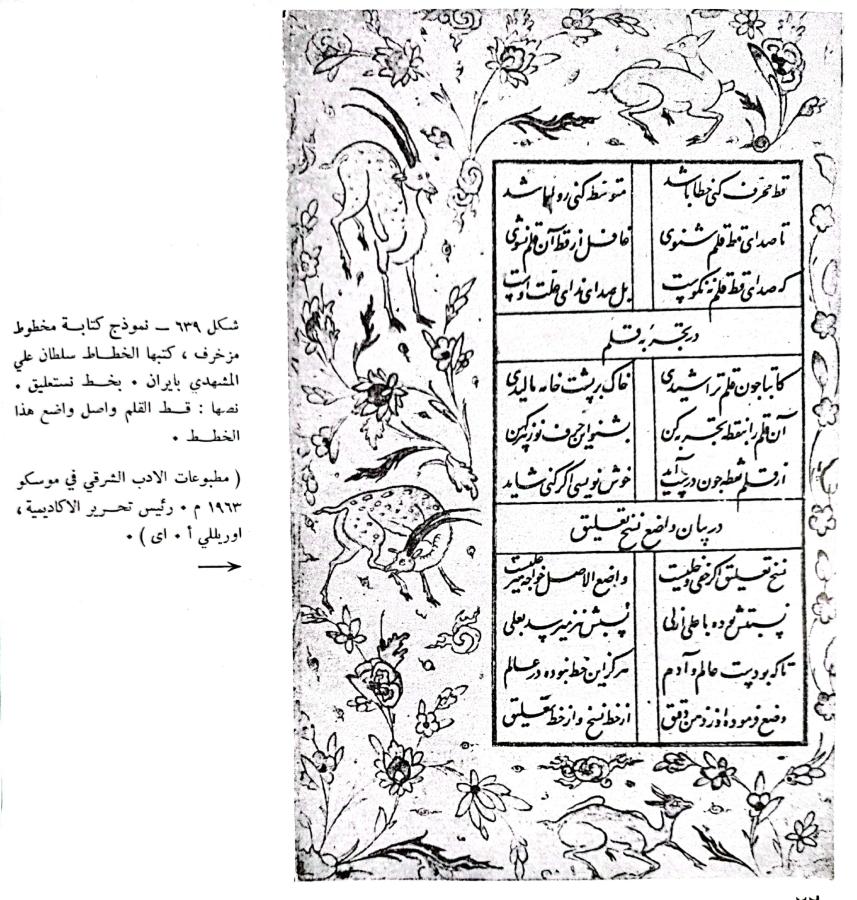 قط محرف کنی خطا باشد متوسط کنی روا باشد
تا صدای قط قلم شنوی غافل از قط آن قلم نشوی
که صدای قط قلم نه نکوست بل صدای ندای قلت اوست
در تجربه قلم
کاتبا چون قلم تراشیدی خاک بر پشت خامه مالیدی
آن قلم را بنقطه تجربه کن بشنو این حرف نوز پیر کهن
از قلم نقطه چون درست آید خوش نویسی اگر کنی شاید
در بیان واضع نسخ تعلیق
نسخ تعلیق اگر خفی و جلیست واضع الاصل خواجه میر علیست
نسبتش بوده با علی ازلی نسبش نیز میرسد بعلی
تا که بودست عالم و آدم هرگز این خط نبوده در عالم
وضع فرموده او ز ذهن دقیق از خط نسخ و از خط تعلیق
شكل ٦٣٩ ــ نموذج كتابة مخطوط
مزخرف ، كتبها الخطاط سلطان علي
المشهدي بايران ٠ بخط نستعليق ٠
نصها : قط القلم واصل واضع هذا
الخط ٠
( مطبوعات الادب الشرقي في موسكو
١٩٦٣ م ٠ رئيس تحرير الاكاديمية ،
اوريللي أ ٠ اى ) ٠